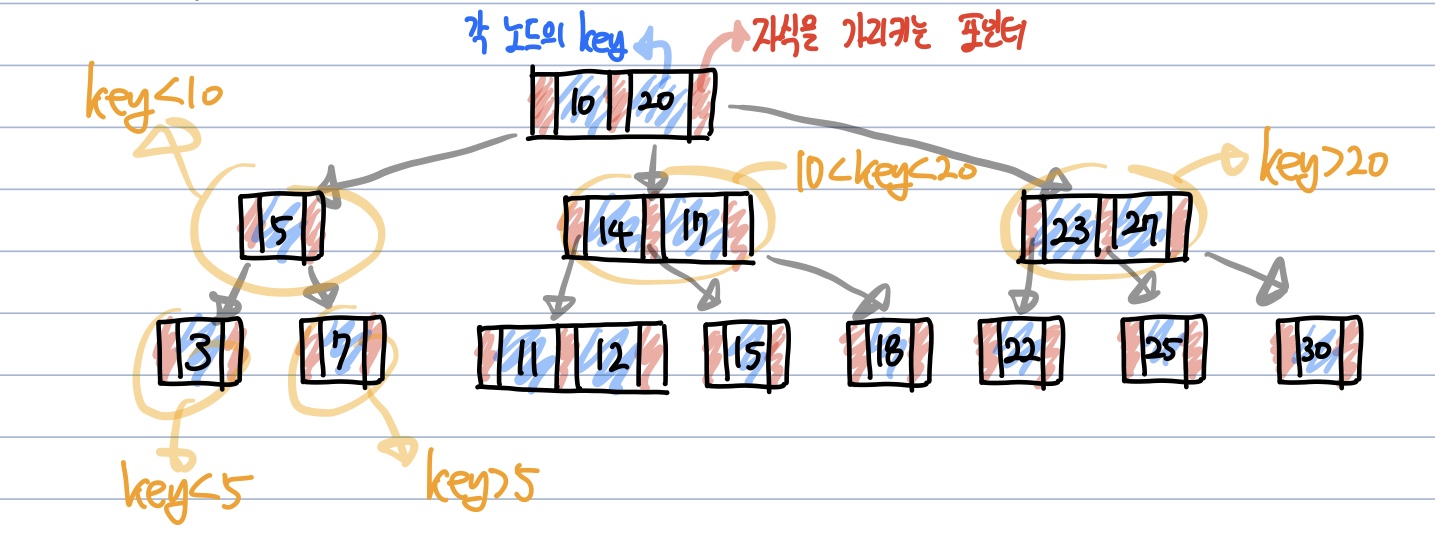 각 노드의 key
자식을 가리키는 포인터
key<10
10 20
10<key<20
key>20
5
14 17
23 27
3
7
11 12
15
18
22
25
30
key<5
key>5